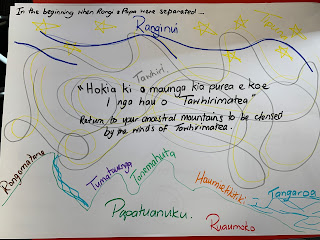 In the beginning when Rangi & Papa were separated...
Ranginui
Tawhiri
"Hokia ki o maunga kia purea e koe
I nga hau o Tawhirimatea"
Return to your ancestral mountains to be clensed
by the winds of Tawhirimatea.
Rongomatane
Tumatauenga
Tanemahuta
Haumietiketike
Tangaroa
Papatuanuku.
Ruaumoko